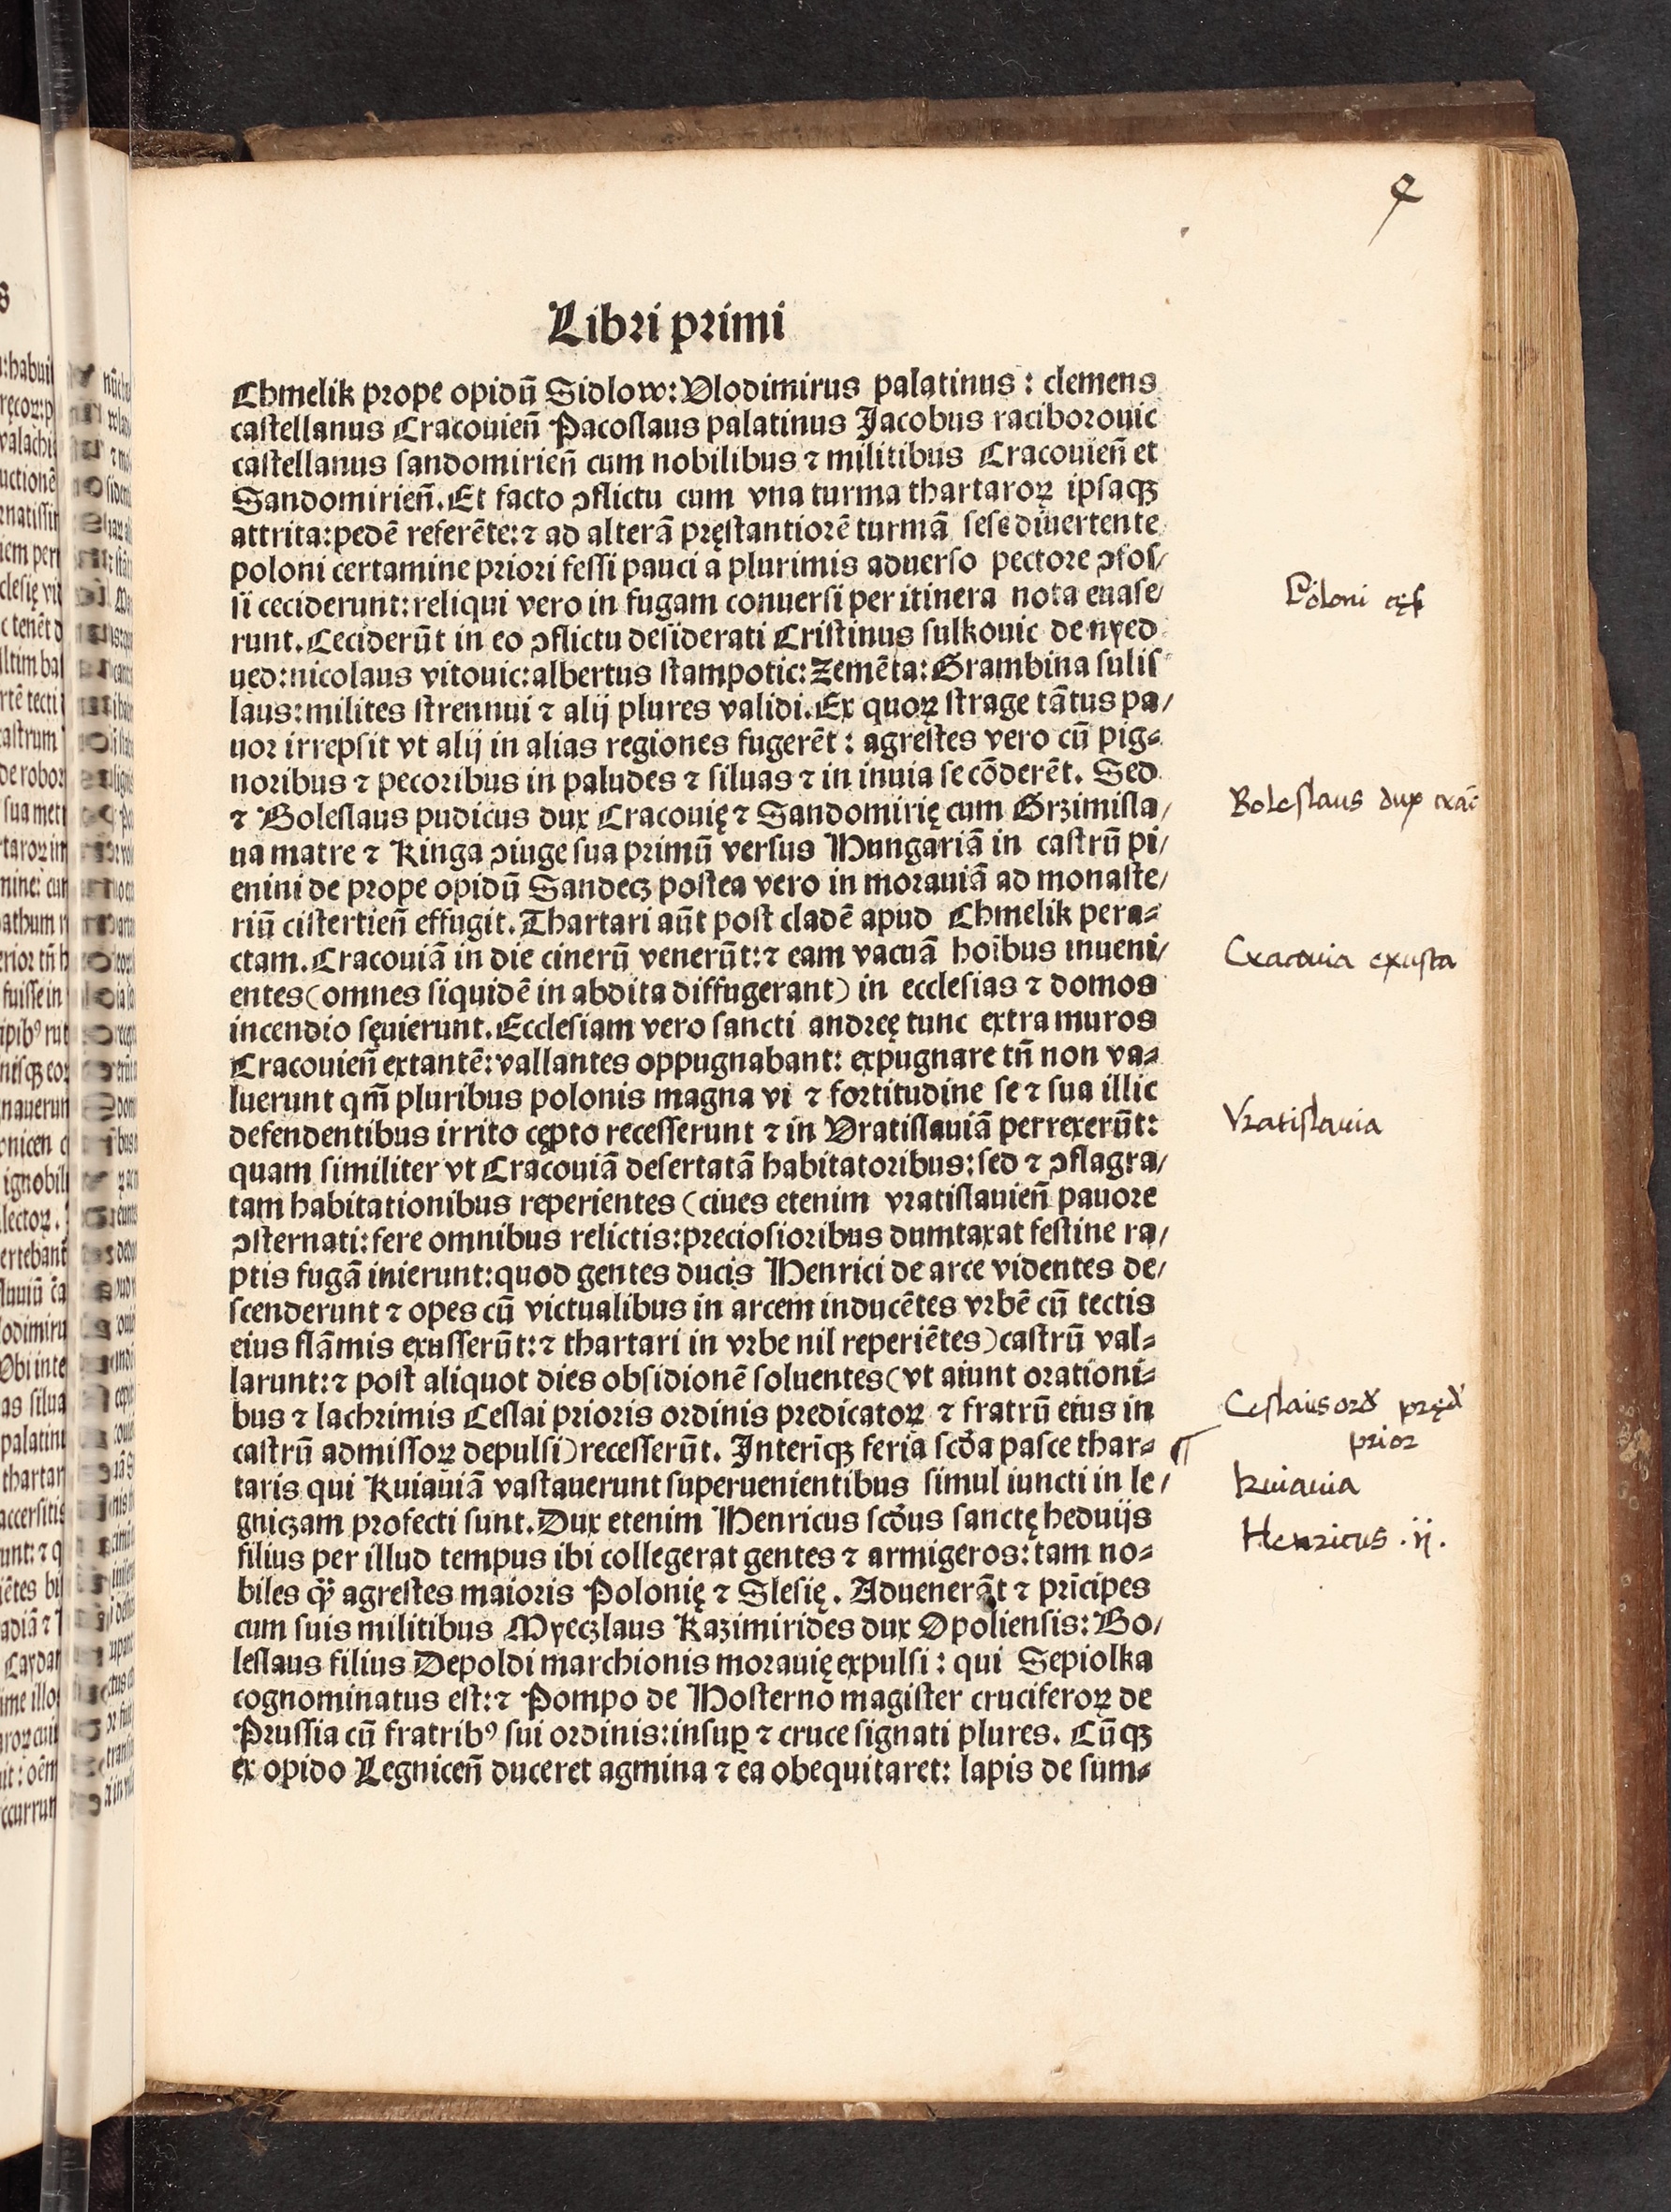 4
Libri primi
Chmelik prope opidū Sidlow: Vlodimirus palatinus: clemens
castellanus Cracouieñ Pacoslaus palatinus Jacobus raciborouic
castellanus sandomirieñ cum nobilibus ⁊ militibus Cracouieñ et
Sandomirieñ. Et facto ꝯflictu cum vna turma thartaroꝝ ipsaqꝫ
attrita: pedē referēte: ⁊ ad alterā pręstantiorē turmā sese diuertente
poloni certamine priori fessi pauci a plurimis aduerso pectore ꝯfos/
si ceciderunt: reliqui vero in fugam conuersi per itinera nota euase/
runt. Ceciderūt in eo ꝯflictu desiderati Cristinus sulkouic de nyed
ued: nicolaus vitouic: albertus stampotic: Zemēta: Grambina sulis
laus: milites strennui ⁊ alij plures validi. Ex quoꝝ strage tātus pa/
uor irrepsit vt alij in alias regiones fugerēt: agrestes vero cū pig⸗
noribus ⁊ pecoribus in paludes ⁊ siluas ⁊ in inuia se cōderēt. Sed
⁊ Boleslaus pudicus dux Cracouię ⁊ Sandomirię cum Grzimisla/
ua matre ⁊ Kinga ꝯiuge sua primū versus Hungariā in castrū pi/
enini de prope opidū Sandecꝫ postea vero in morauiā ad monaste/
riū cistertieñ effugit. Thartari aūt post cladē apud Chmelik pera⸗
ctam. Cracouiā in die cinerū venerūt: ⁊ eam vacuā hoībus inueni/
entes (omnes siquidē in abdita diffugerant) in ecclesias ⁊ domos
incendio sęuierunt. Ecclesiam vero sancti andreę tunc extra muros
Cracouieñ extantē: vallantes oppugnabant: expugnare tñ non va⸗
luerunt qm̄ pluribus polonis magna vi ⁊ fortitudine se ⁊ sua illic
defendentibus irrito cępto recesserunt ⁊ in Vratislauiā perrexerūt:
quam similiter vt Cracouiā desertatā habitatoribus: sed ⁊ ꝯflagra/
tam habitationibus reperientes (ciues etenim vratislauieñ pauore
ꝯsternati: fere omnibus relictis: preciosioribus dumtaxat festine ra/
ptis fugā inierunt: quod gentes ducis Henrici de arce videntes de/
scenderunt ⁊ opes cū victualibus in arcem inducētes vrbē cū tectis
eius flāmis exusserūt: ⁊ thartari in vrbe nil reperiētes) castrū val⸗
larunt: ⁊ post aliquot dies obsidionē soluentes (vt aiunt orationi⸗
bus ⁊ lachrimis Ceslai prioris ordinis predicatoꝝ ⁊ fratrū eius in
castrū admissoꝝ depulsi) recesserūt. Interīqꝫ feria scđa pasce thar⸗
taris qui Kuiauiā vastauerunt superuenientibus simul iuncti in le/
gnicꝫam profecti sunt. Dux etenim Henricus scđus sanctę heduijs
filius per illud tempus ibi collegerat gentes ⁊ armigeros: tam no⸗
biles q̄ꝫ agrestes maioris Polonię ⁊ Slesię. Aduenerāt ⁊ prīcipes
cum suis militibus Myecꝫlaus Kazimirides dux Opoliensis: Bo/
leslaus filius Depoldi marchionis morauię expulsi: qui Sepiolka
cognominatus est: ⁊ Pompo de Hosterno magister cruciferoꝝ de
Prussia cū fratribꝰ sui ordinis: insuꝑ ⁊ cruce signati plures. Cūqꝫ
ex opido Legniceñ duceret agmina ⁊ ea obequitaret: lapis de sum⸗
Poloni cęsi
Boleslaus dux crac̄
Cracouia exusta
Vratislauia
Ceslaus ord pręd
prior
kuiauia
Henricus .ij.